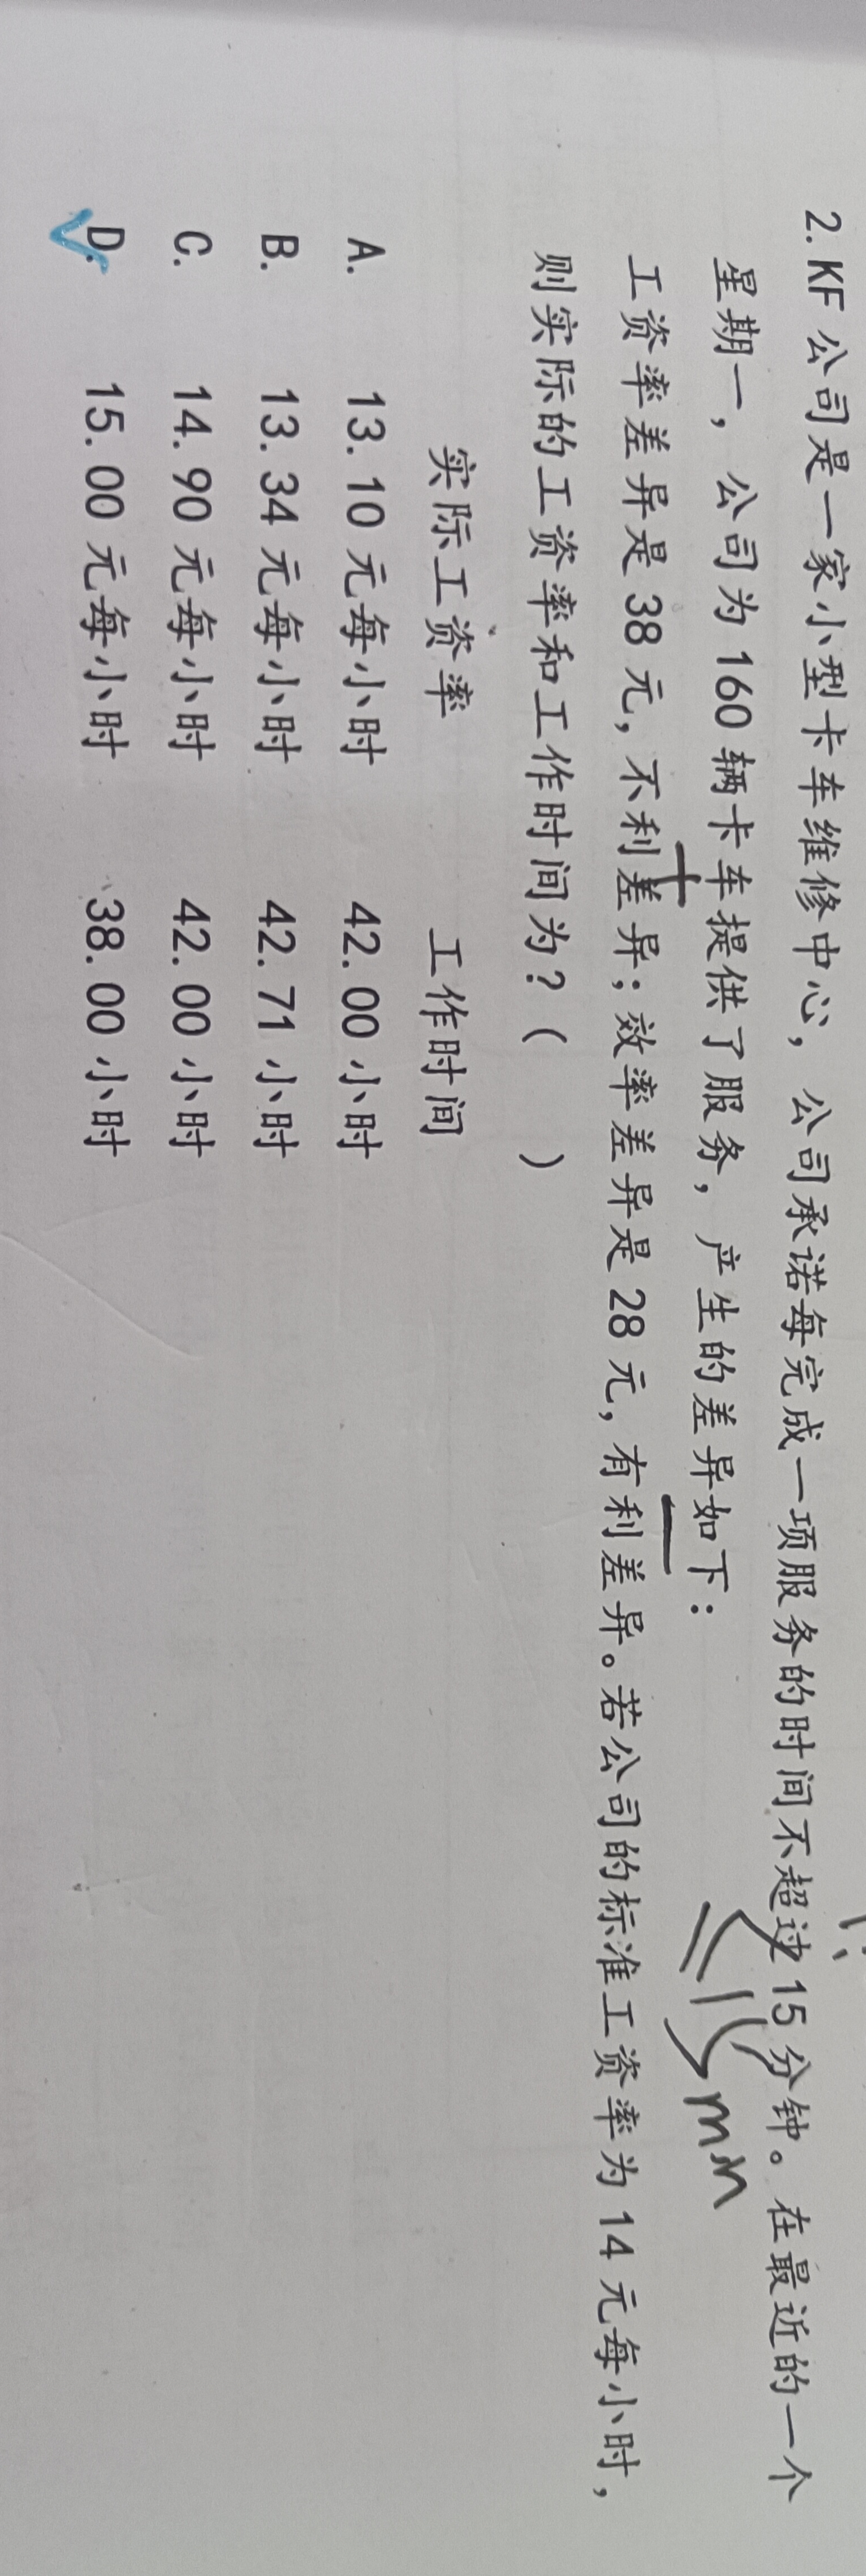 2. KF 公司是一家小型卡车维修中心，公司承诺每完成一项服务的时间不超过 15 分钟。在最近的一个
≤15 min
星期一，公司为 160 辆卡车提供了服务，产生的差异如下：
+
—
工资率差异是 38 元，不利差异；效率差异是 28 元，有利差异。若公司的标准工资率为 14 元每小时，
则实际的工资率和工作时间为？（ ）
实际工资率 工作时间
A. 13.10 元每小时 42.00 小时
B. 13.34 元每小时 42.71 小时
C. 14.90 元每小时 42.00 小时
D. 15.00 元每小时 38.00 小时